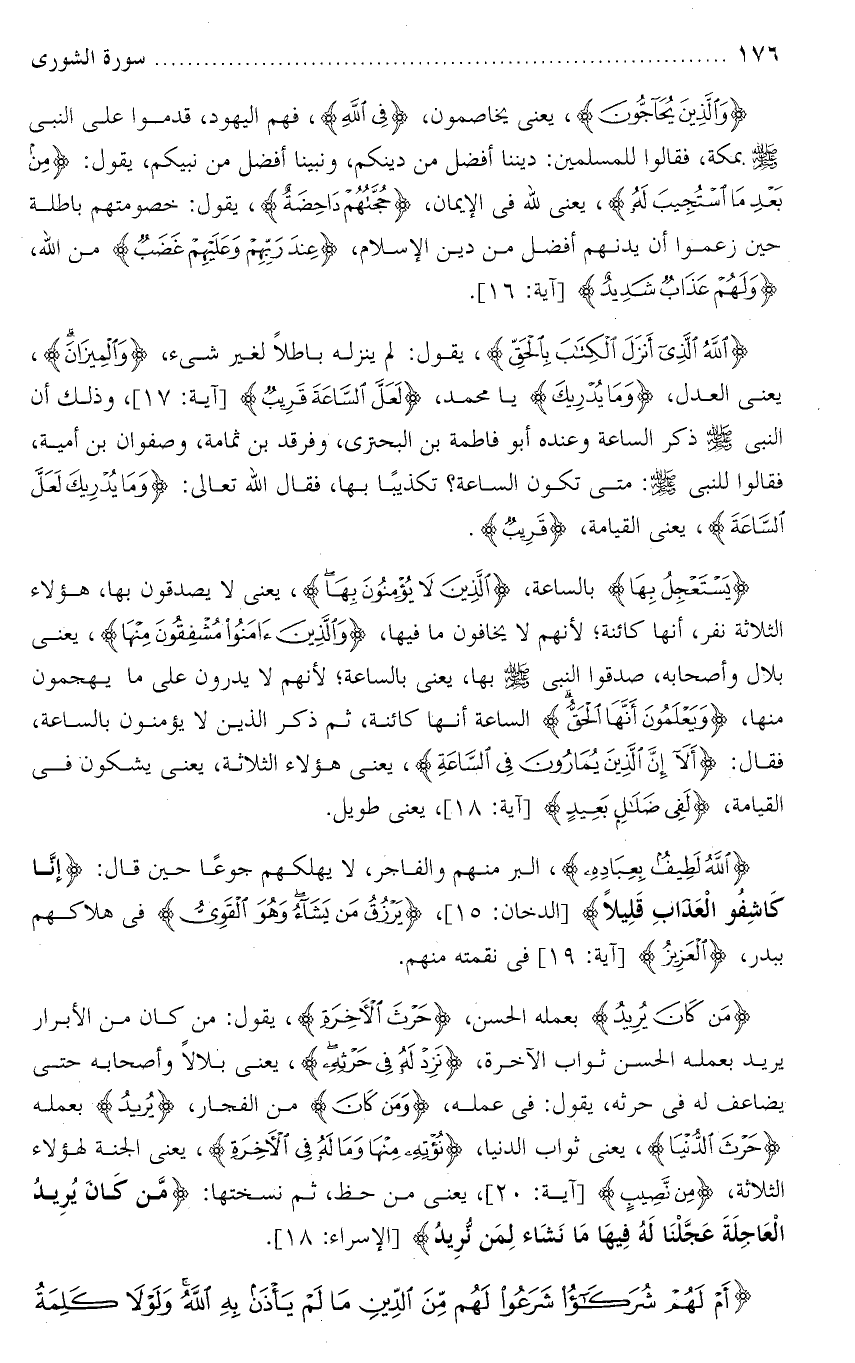 ١٧٦ ........................................................................ سورة الشورى
﴿وَٱلَّذِينَ يُحَآجُّونَ﴾، يعنى يخاصمون، ﴿فِى ٱللَّهِ﴾، فهم اليهود، قدموا على النبى
ﷺ بمكة، فقالوا للمسلمين: ديننا أفضل من دينكم، ونبينا أفضل من نبيكم، يقول: ﴿مِنۢ
بَعْدِ مَا ٱسْتُجِيبَ لَهُۥ﴾، يعنى لله فى الإيمان، ﴿حُجَّتُهُمْ دَاحِضَةٌ﴾، يقول: خصومتهم باطلة
حين زعموا أن يدنهم أفضل من دين الإسلام، ﴿عِندَ رَبِّهِمْ وَعَلَيْهِمْ غَضَبٌ﴾ من الله،
﴿وَلَهُمْ عَذَابٌ شَدِيدٌ﴾ [آية: ١٦].
﴿ٱللَّهُ ٱلَّذِىٓ أَنزَلَ ٱلْكِتَـٰبَ بِٱلْحَقِّ﴾، يقول: لم ينزله باطلاً لغير شىء، ﴿وَٱلْمِيزَانَۗ﴾،
يعنى العدل، ﴿وَمَا يُدْرِيكَ﴾ يا محمد، ﴿لَعَلَّ ٱلسَّاعَةَ قَرِيبٌ﴾ [آية: ١٧]، وذلك أن
النبى ﷺ ذكر الساعة وعنده أبو فاطمة بن البحترى، وفرقد بن ثمامة، وصفوان بن أمية،
فقالوا للنبى ﷺ: متى تكون الساعة؟ تكذيبًا بها، فقال الله تعالى: ﴿وَمَا يُدْرِيكَ لَعَلَّ
ٱلسَّاعَةَ﴾، يعنى القيامة، ﴿قَرِيبٌ﴾.
﴿يَسْتَعْجِلُ بِهَا﴾ بالساعة، ﴿ٱلَّذِينَ لَا يُؤْمِنُونَ بِهَاۖ﴾، يعنى لا يصدقون بها، هؤلاء
الثلاثة نفر، أنها كائنة؛ لأنهم لا يخافون ما فيها، ﴿وَٱلَّذِينَ ءَامَنُوا۟ مُشْفِقُونَ مِنْهَا﴾، يعنى
بلال وأصحابه، صدقوا النبى ﷺ بها، يعنى بالساعة؛ لأنهم لا يدرون على ما يهجمون
منها، ﴿وَيَعْلَمُونَ أَنَّهَا ٱلْحَقُّۗ﴾ الساعة أنها كائنة، ثم ذكر الذين لا يؤمنون بالساعة،
فقال: ﴿أَلَآ إِنَّ ٱلَّذِينَ يُمَارُونَ فِى ٱلسَّاعَةِ﴾، يعنى هؤلاء الثلاثة، يعنى يشكون فى
القيامة، ﴿لَفِى ضَلَـٰلٍۭ بَعِيدٍ﴾ [آية: ١٨]، يعنى طويل.
﴿ٱللَّهُ لَطِيفٌۢ بِعِبَادِهِۦ﴾، البر منهم والفاجر، لا يهلكهم جوعًا حين قال: ﴿إِنَّا
كَاشِفُو الْعَذَابِ قَلِيلاً﴾ [الدخان: ١٥]، ﴿يَرْزُقُ مَن يَشَآءُۖ وَهُوَ ٱلْقَوِىُّ﴾ فى هلاكهم
ببدر، ﴿ٱلْعَزِيزُ﴾ [آية: ١٩] فى نقمته منهم.
﴿مَن كَانَ يُرِيدُ﴾ بعمله الحسن، ﴿حَرْثَ ٱلْـَٔاخِرَةِ﴾، يقول: من كان من الأبرار
يريد بعمله الحسن ثواب الآخرة، ﴿نَزِدْ لَهُۥ فِى حَرْثِهِۦۖ﴾، يعنى بلالاً وأصحابه حتى
يضاعف له فى حرثه، يقول: فى عمله، ﴿وَمَن كَانَ﴾ من الفجار، ﴿يُرِيدُ﴾ بعمله
﴿حَرْثَ ٱلدُّنْيَا﴾، يعنى ثواب الدنيا، ﴿نُؤْتِهِۦ مِنْهَا وَمَا لَهُۥ فِى ٱلْـَٔاخِرَةِ﴾، يعنى الجنة لهؤلاء
الثلاثة، ﴿مِن نَّصِيبٍ﴾ [آية: ٢٠]، يعنى من حظ، ثم نسختها: ﴿مَّن كَانَ يُرِيدُ
الْعَاجِلَةَ عَجَّلْنَا لَهُ فِيهَا مَا نَشَاء لِمَن نُّرِيدُ﴾ [الإسراء: ١٨].
﴿أَمْ لَهُمْ شُرَكَـٰٓؤُا۟ شَرَعُوا۟ لَهُم مِّنَ ٱلدِّينِ مَا لَمْ يَأْذَنۢ بِهِ ٱللَّهُۚ وَلَوْلَا كَلِمَةُ